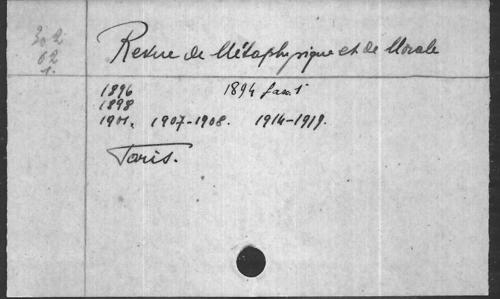 302
62
1.
Revue de Métaphysique et de Morale
1896 1894 fasc. 1
1898
1901. 1907-1908. 1914-1919.
Paris.